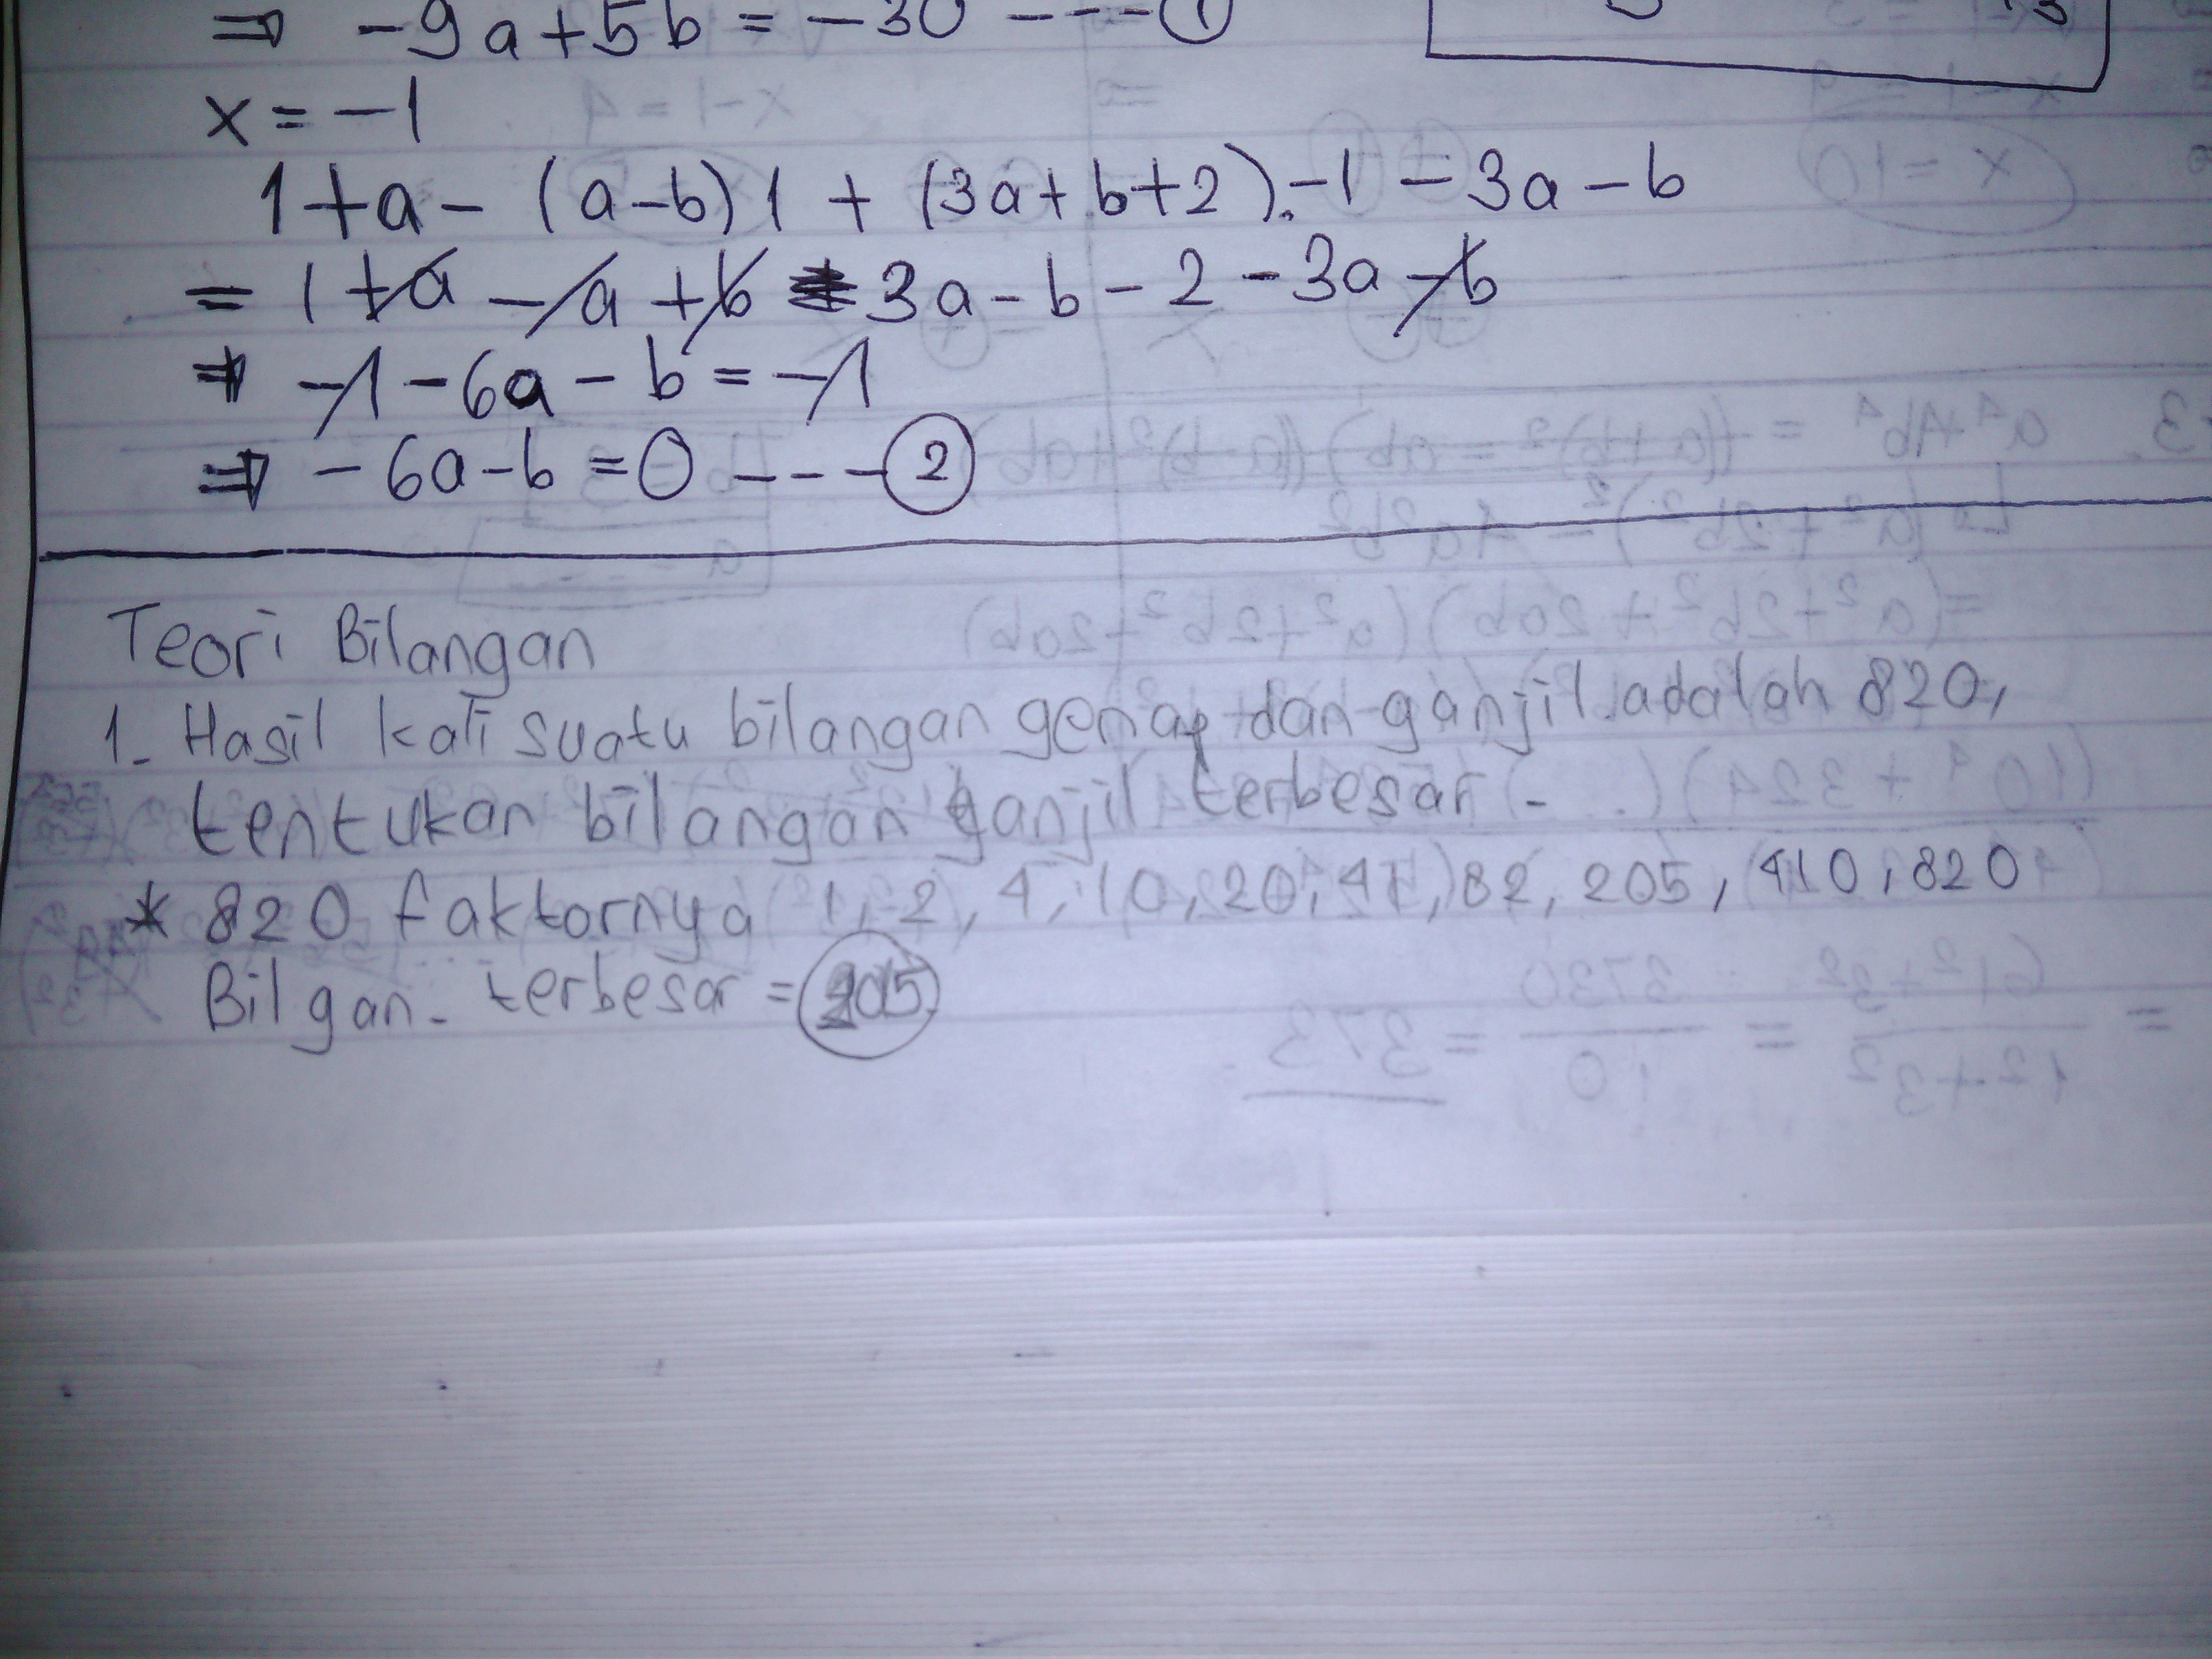 ⇒ -9a+5b = -30 ---- ①
x = -1
1+a - (a-b) 1 + (3a+b+2).-1 - 3a - b
= 1 + a - a + b - 3a - b - 2 - 3a - b
⇒ -1 - 6a - b = -1
⇒ - 6a - b = 0 --- - ②
Teori Bilangan
1. Hasil kali suatu bilangan genap dan ganjil adalah 820,
tentukan bilangan ganjil terbesar -
* 820 faktornya 1, 2, 4, 10, 20, 41, 82, 205, 410, 820
Bil gan. terbesar = 205